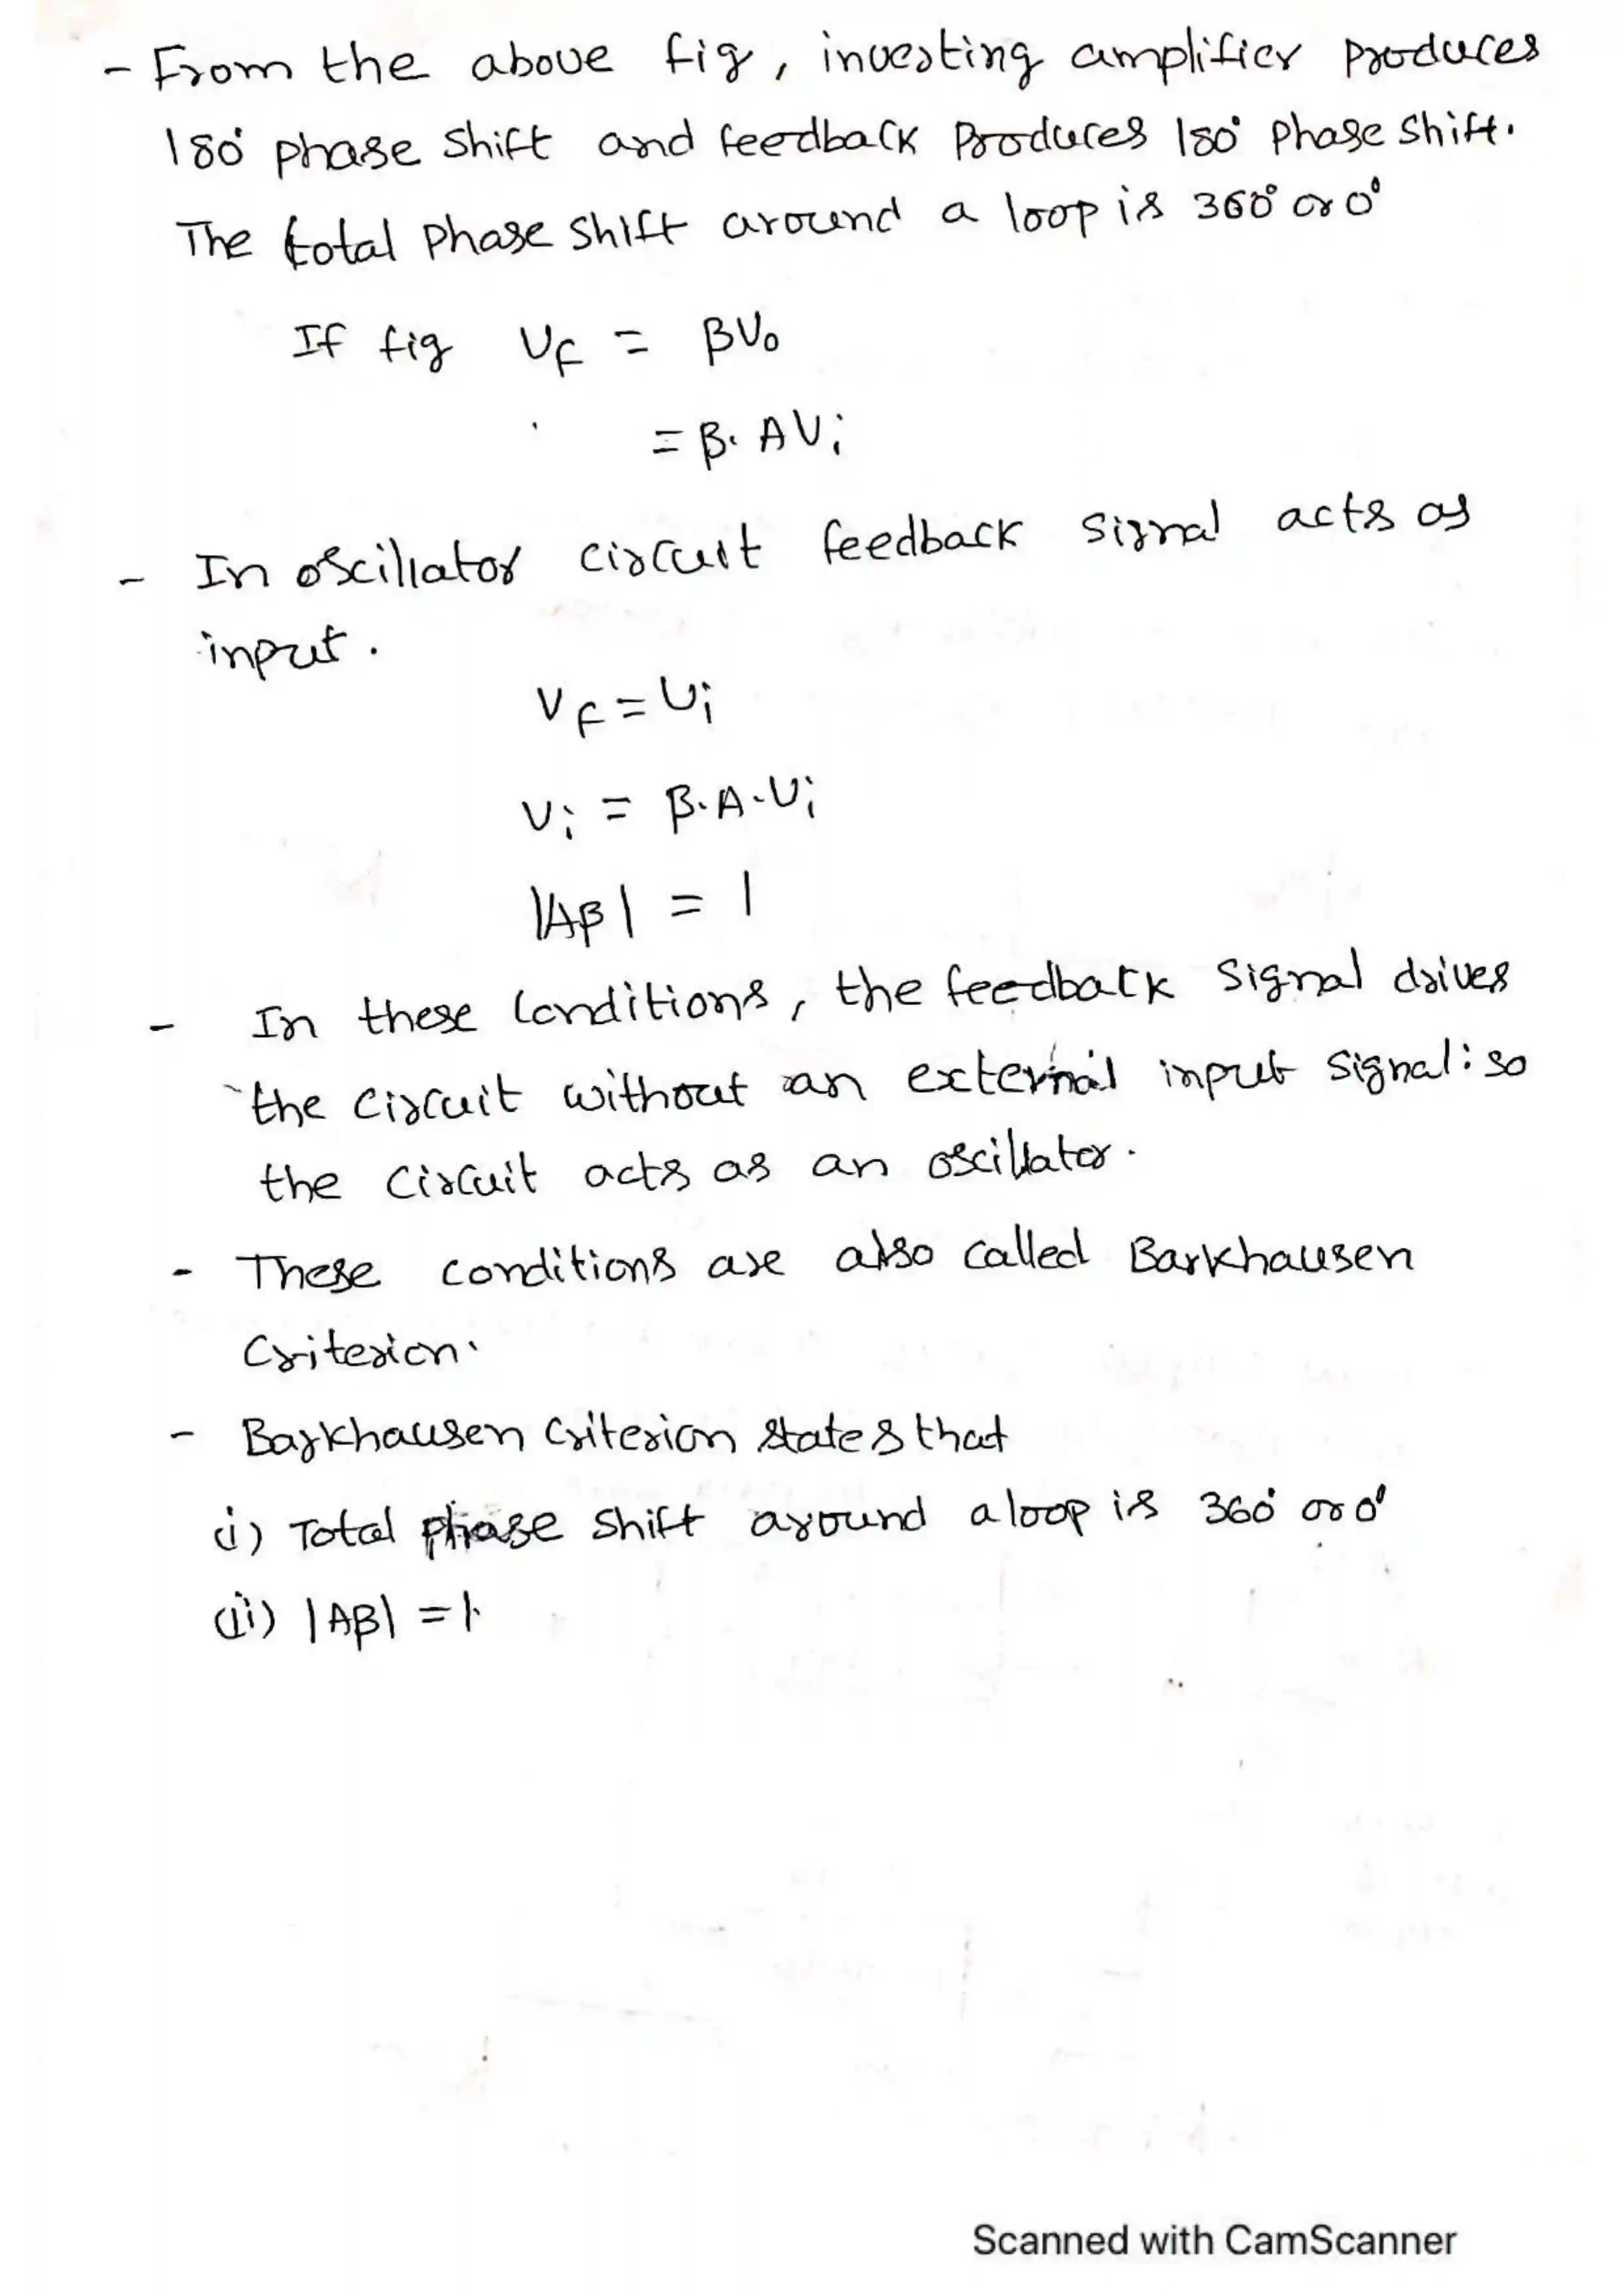 - From the above fig, inverting amplifier produces
180° phase shift and feedback produces 180° phase shift.
The total phase shift around a loop is 360° or 0°
If fig Vf = βVo
= β. AVi
- In oscillator circuit feedback signal acts as
input.
Vf = Vi
Vi = β.A.Vi
|Aβ| = 1
- In these conditions, the feedback signal drives
the circuit without an external input signal: so
the circuit acts as an oscillator.
- These conditions are also called Barkhausen
Criterion.
- Barkhausen Criterion states that
(i) Total phase shift around a loop is 360° or 0°
(ii) |Aβ| = 1.
Scanned with CamScanner